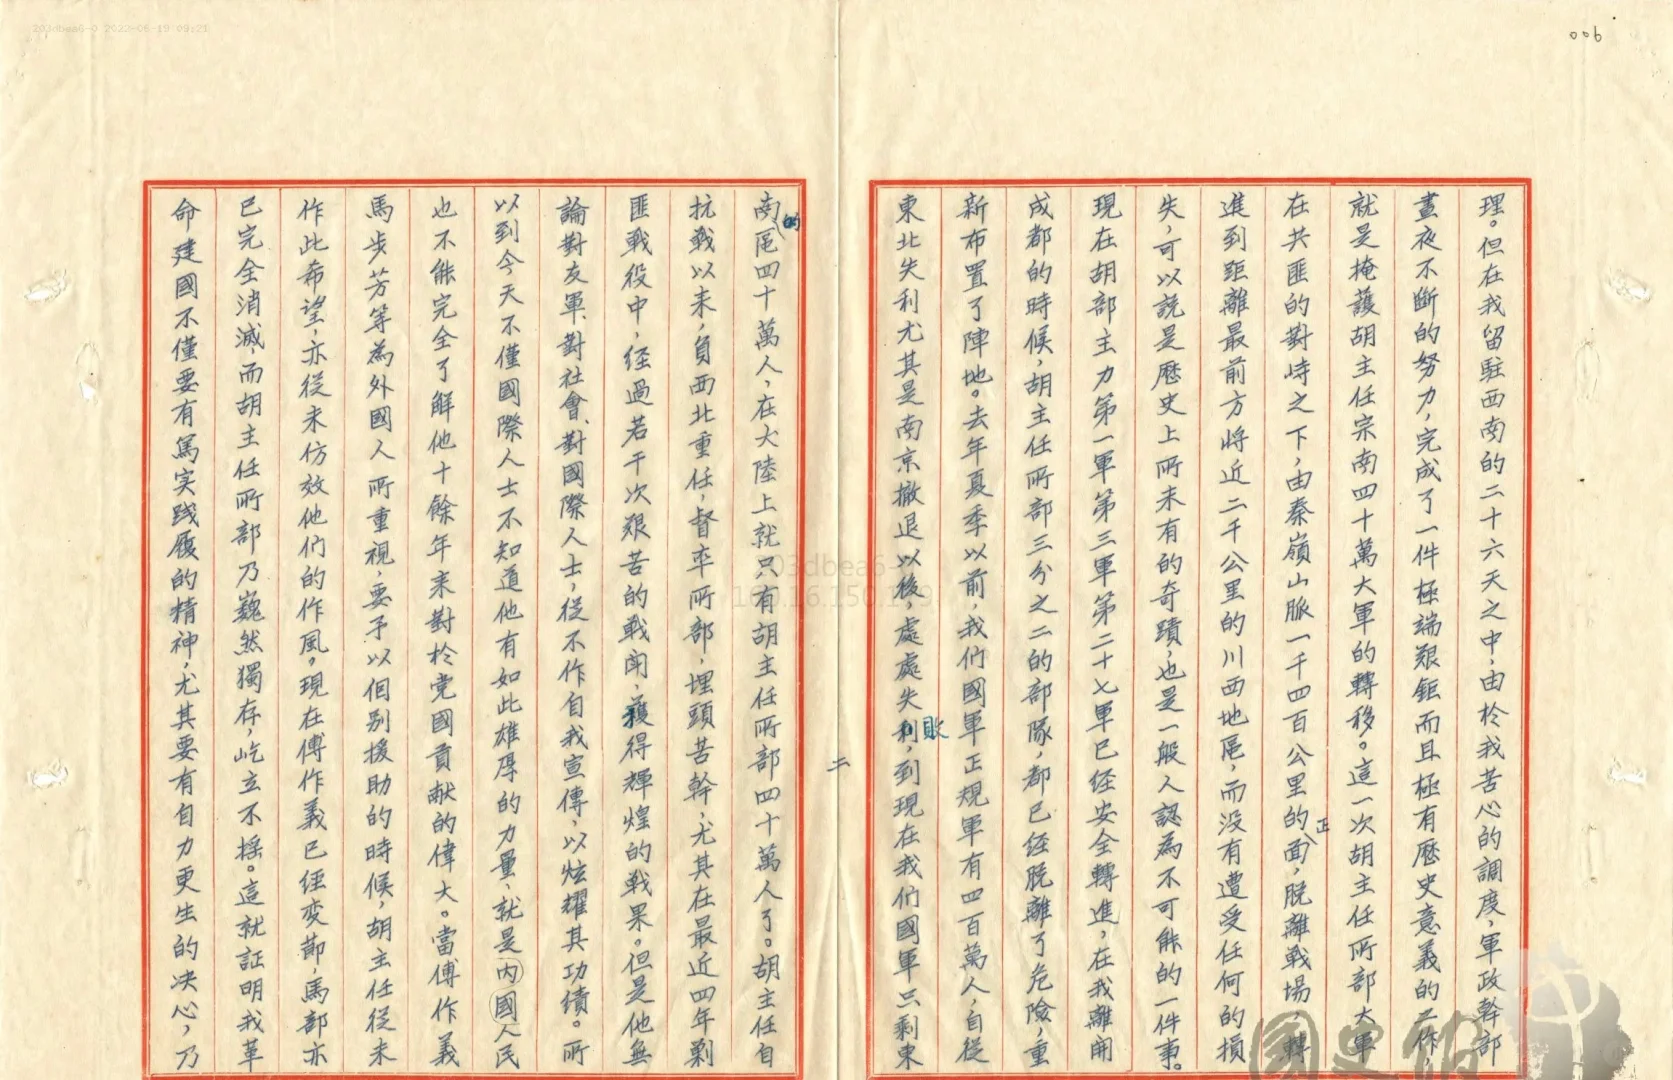 203dbea6-0 2022-06-19 09:21
006
理。但在我留駐西南的二十六天之中，由於我苦心的調度，軍政幹部
晝夜不斷的努力，完成了一件極端艱鉅而且極有歷史意義的工作，
就是掩護胡主任宗南四十萬大軍的轉移。這一次胡主任所部大軍
在共匪的對峙之下，由秦嶺山脈一千四百公里的正面，脫離戰場，轉
進到距離最前方將近二千公里的川西地區，而没有遭受任何的損
失，可以說是歷史上所未有的奇蹟，也是一般人認為不可能的一件事。
現在胡部主力第一軍第三軍第二十七軍已經安全轉進，在我離開
成都的時候，胡主任所部三分之二的部隊，都已經脫離了危險，重
新布置了陣地。去年夏季以前，我們國軍正規軍有四百萬人，自從
東北失利尤其是南京撤退以後，處處失敗，到現在我们國軍只剩東
南的區四十萬人，在大陸上就只有胡主任所部四十萬人了。胡主任自
抗戰以来，負西北重任，督率所部，埋頭苦幹，尤其在最近四年剿
匪戰役中，經過若干次艱苦的戰鬥，獲得輝煌的戰果。但是他無
論對友軍、對社會、對國際人士，從不作自我宣傳，以炫耀其功績。所
以到今天不僅國際人士不知道他有如此雄厚的力量，就是內國人民
也不能完全了解他十餘年來對於党國貢献的偉大。當傅作義
馬步芳等為外國人所重視，要予以個别援助的時候，胡主任從未
作此希望，亦從未仿效他們的作風。現在傅作義已經变節，馬部亦
已完全消滅，而胡主任所部乃巍然獨存，屹立不摇。這就証明我革
命建國不僅要有篤实践履的精神，尤其要有自力更生的决心，乃
二
203dbea6-
國史館